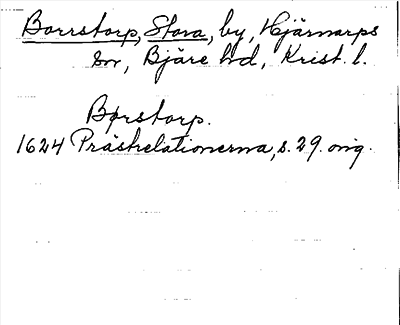 Borrstorp, Stora, by, Hjärnarps
sn, Bjäre hd, Krist. l.
Børstorp.
1624 Prästrelationerna, s. 29. orig.